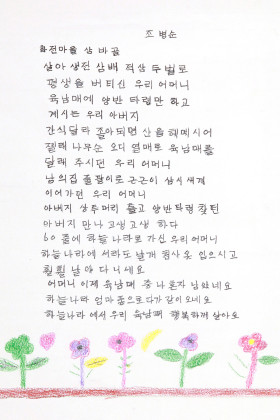 조 병순
화전마을 삼바골
살아 생전 삼베 적삼 두벌로
평생을 버티신 우리 어머니
육남매에 양반 타령만 하고
계시는 우리 아버지
간식달라 졸아되면 산을 헤메시어
찔레 나무순 오디 열매로 육남매를
달래 주시던 우리 어머니
남의집 품팔이로 근근이 삼시세께
이어가던 우리 어머니
아버지 상투머리 틀고 양반타령 찾던
아버지 만나 고생고생 하다
60 줄에 하늘나라로 가신 우리어머니
하늘나라에서라도 날개 정사옷 입으시고
훨훨 날아 다니세요
어머니 이제 육남매 중 나 혼자 남았네요
하늘나라 엄마 품으로 다가 같이 오네요
하늘나라 에서 우리 육남매 행복하게 살아요